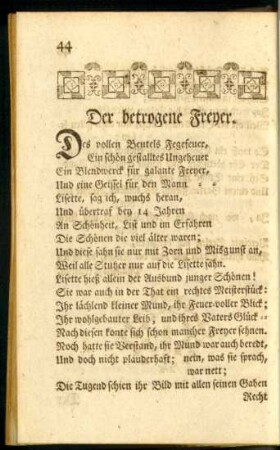 44
Der betrogene Freyer.
Des vollen Beutels Fegefeuer,
Ein schön gestalltes Ungeheur
Ein Blendwerck für galante Freyer,
Und eine Geissel für den Mann
Lisette, sag ich, wuchs heran,
Und übertraf bey 14 Jahren
An Schönheit, List und im Erfahren
Die Schönen die viel älter waren;
Und diese sahn sie nur mit Zorn und Misgunst an,
Weil alle Stutzer nur auf die Lisette sahn.
Lisette hieß allein der Ausbund junger Schönen!
Sie war auch in der That ein rechtes Meisterstück:
Ihr lächlend kleiner Mund, ihr Feuer-voller Blick;
Ihr wohlgebauter Leib; und ihres Vaters Glück
Nach diesen konte sich schon mancher Freyer sehnen.
Noch hatte sie Verstand, ihr Mund war auch beredt,
Und doch nicht plauderhaft; nein, was sie sprach,
war nett;
Die Tugend schien ihr Bild mit allen seinen Gaben
Recht